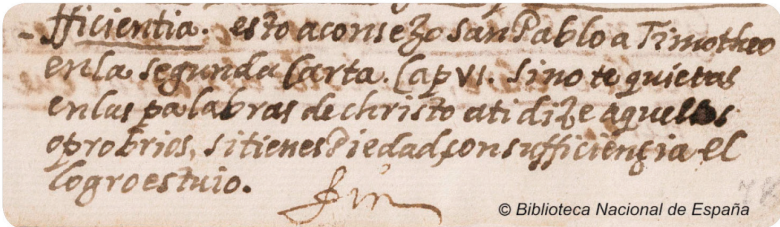 fficientia. esto aconsejo San Pablo a Timotheo
en la segunda Carta. Cap VI. Si no te quietas
en las palabras de christo a ti dize aquellos
oprobrios, si tienes piedad con sufficiençia el
logro es tuio.
fin
© Biblioteca Nacional de España